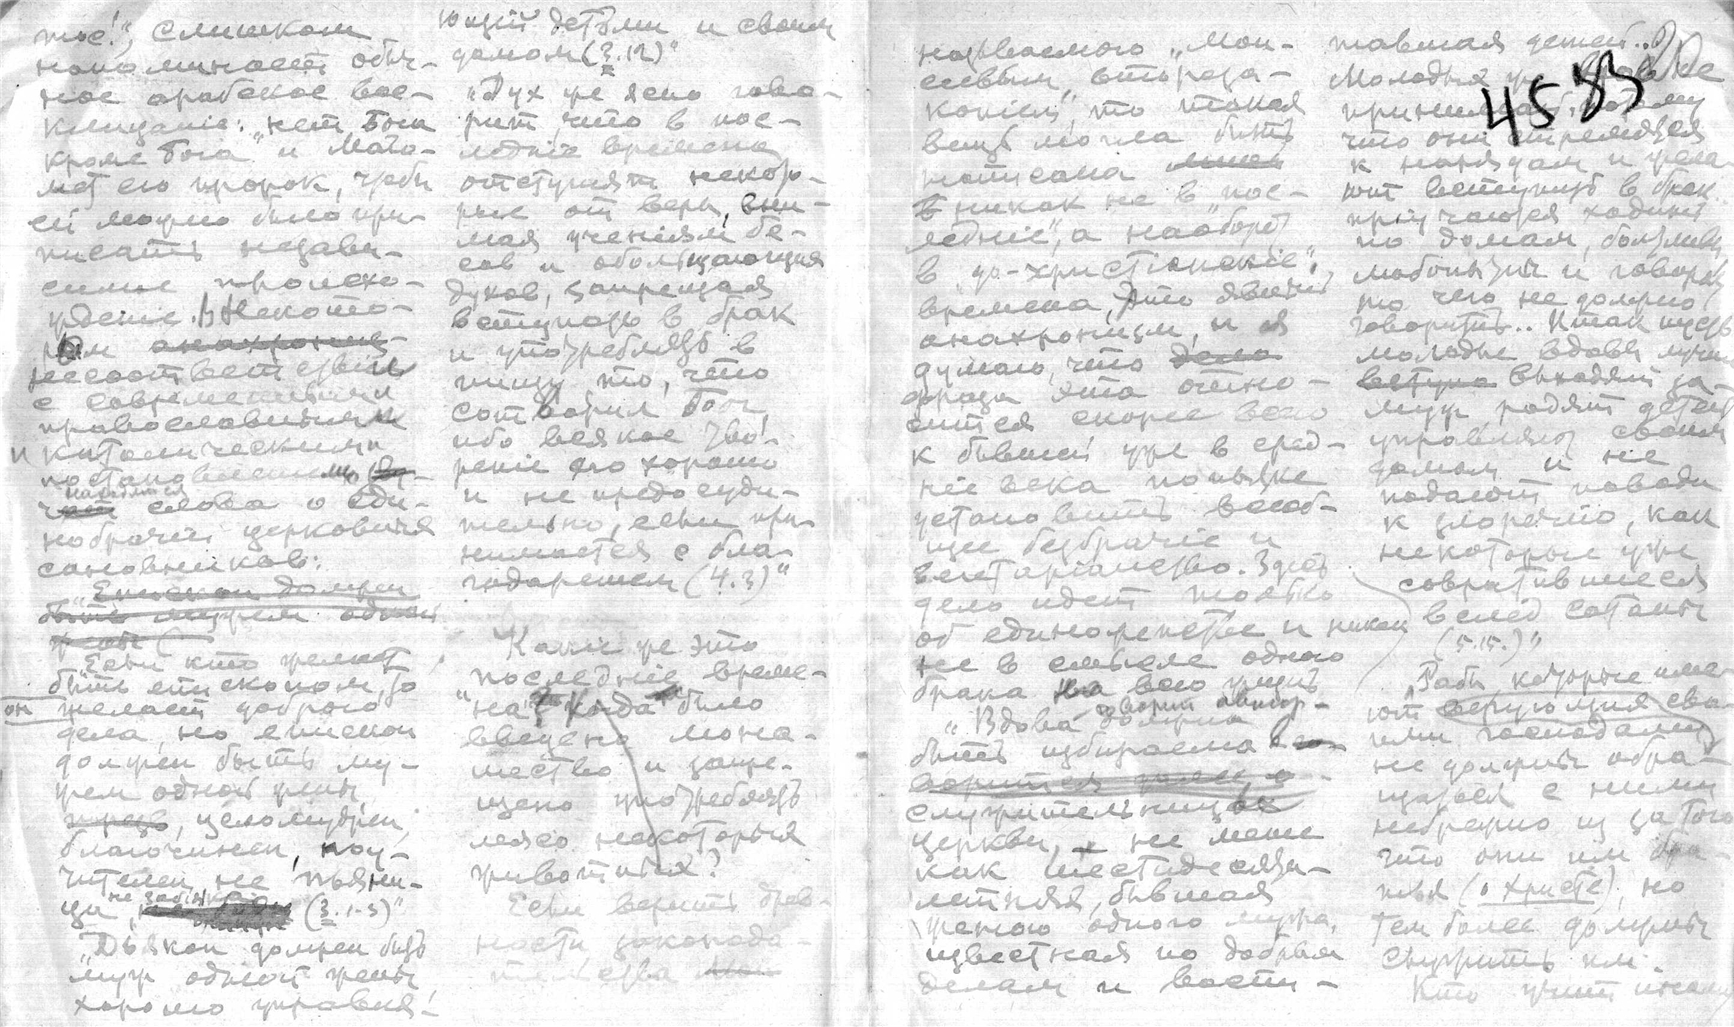 тос!", слишком
напоминает обыч-
ное арабское вос-
клицаніе: "нет Бога
кроме Бога и Маго-
мет его пророк, чтобы
ей можно было при-
писать незави-
симое происхо-
жденіе. Некото-
рым анахрониз-
несоответствіем
с современными
православными
и католическими
постановленіями
находятся
слова о еди-
нобрачіи церковных
сановников:
"Епископ должен
быть мужем одной
жены (
"Если кто желает
быть епископом, то
он желает доброго
дела, но епископ
должен быть му-
жем одной жены
трезв, целомудрен,
благочинен, поу-
чителен не пьяни-
ца, (3.1-3)"
"Дьякон должен быть
муж одной жены,
хорошо управля-
ющій детьми и своим
домом (3.12)"
"Дух же ясно гово-
рит, что в пос-
ледніе времена
отступят некото-
рые от веры, вни-
мая ученіям бе-
сов и обольщающих
духов, запрещая
вступать в брак
и употреблять в
пищу то, что
сотворил Бог,
ибо всякое творе-
ніе его хорошо
и не предосуди-
тельно, если при-
нимается с бла-
годареніем (4.3)"
Какіе же это
"последніе време-
на? Когда было
введено мона-
шество и запре-
щено употреблять
мясо некоторых
животных?
Если верить древ-
ности законода-
тельства
называемого "Мои-
сеевым, второза-
коніем", то такая
вещь могла быть
написана лишь
никак не в "пос-
ледніе", а наоборот
в "до-христіанскіе",
времена. Это явный
анахронизм, и я
думаю, что дело
фраза эта отно-
сится скорее всего
к бывшей уже в сред-
ніе века попытке
установить всеоб-
щее безбрачіе и
вегетаріанство. Здесь
дело идет только
об единоженстве и никак
не в смысле одного
брака на всю жизнь
"Вдова - говорит автор -
должна
быть избираема в
служительницы
церкви, не менее
как шестидесяти-
летняя, бывшая
женою одного мужа,
известная по добрым
делам и воспи-
тавшая детей..
4533
Молодых же вдов не
принимай, потому
что они стремятся
к нарядам и жела-
ют вступить в брак
приучаются ходить
по домам, болтливы
любопытны и говорят
то чего не должно
говорить.. Итак пусть
молодые вдовы лучше
вступа выходят за-
муж родят детей
управляют своим
домом и не
подают повода
к злоречію, как
некоторые уже
совратившіеся
вслед сатаны
(5.15.)"
"Рабы которые име-
ют верующих сво-
ими господами
не должны обра-
щаться с ними
небрежно из за того
что они им бра-
тья (о Христе), но
тем более должны
служить им.
Кто учит иному